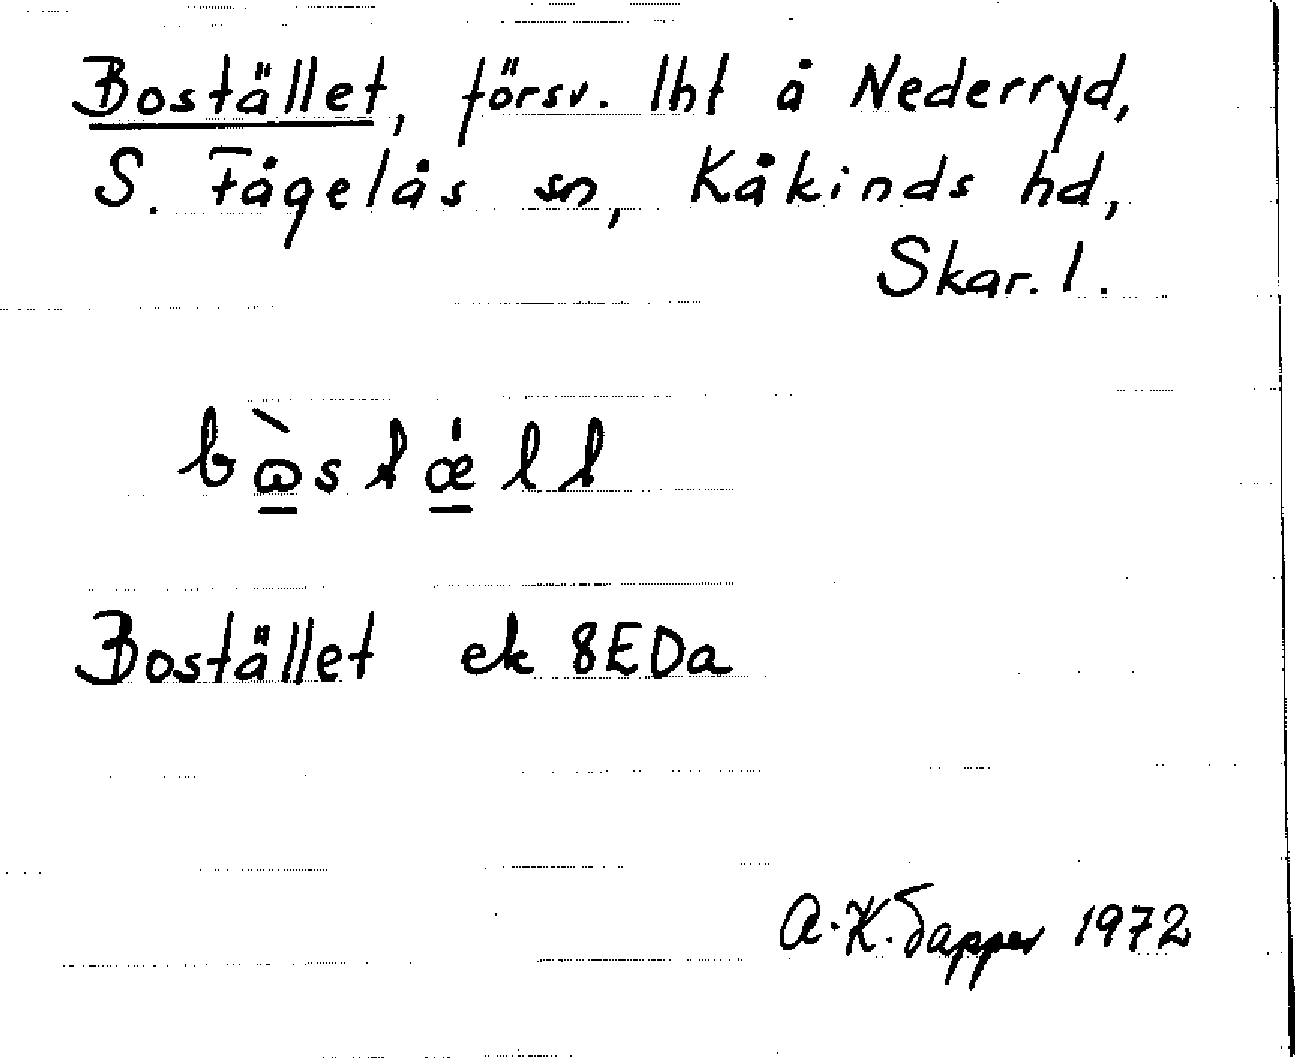 Bostället, försv. lht å Nederryd,
S. Fågelås sn, Kåkinds hd,
Skar. l.
bɷ̀stǽlt
Bostället ek 8EDa
A.K. Tapper 1972